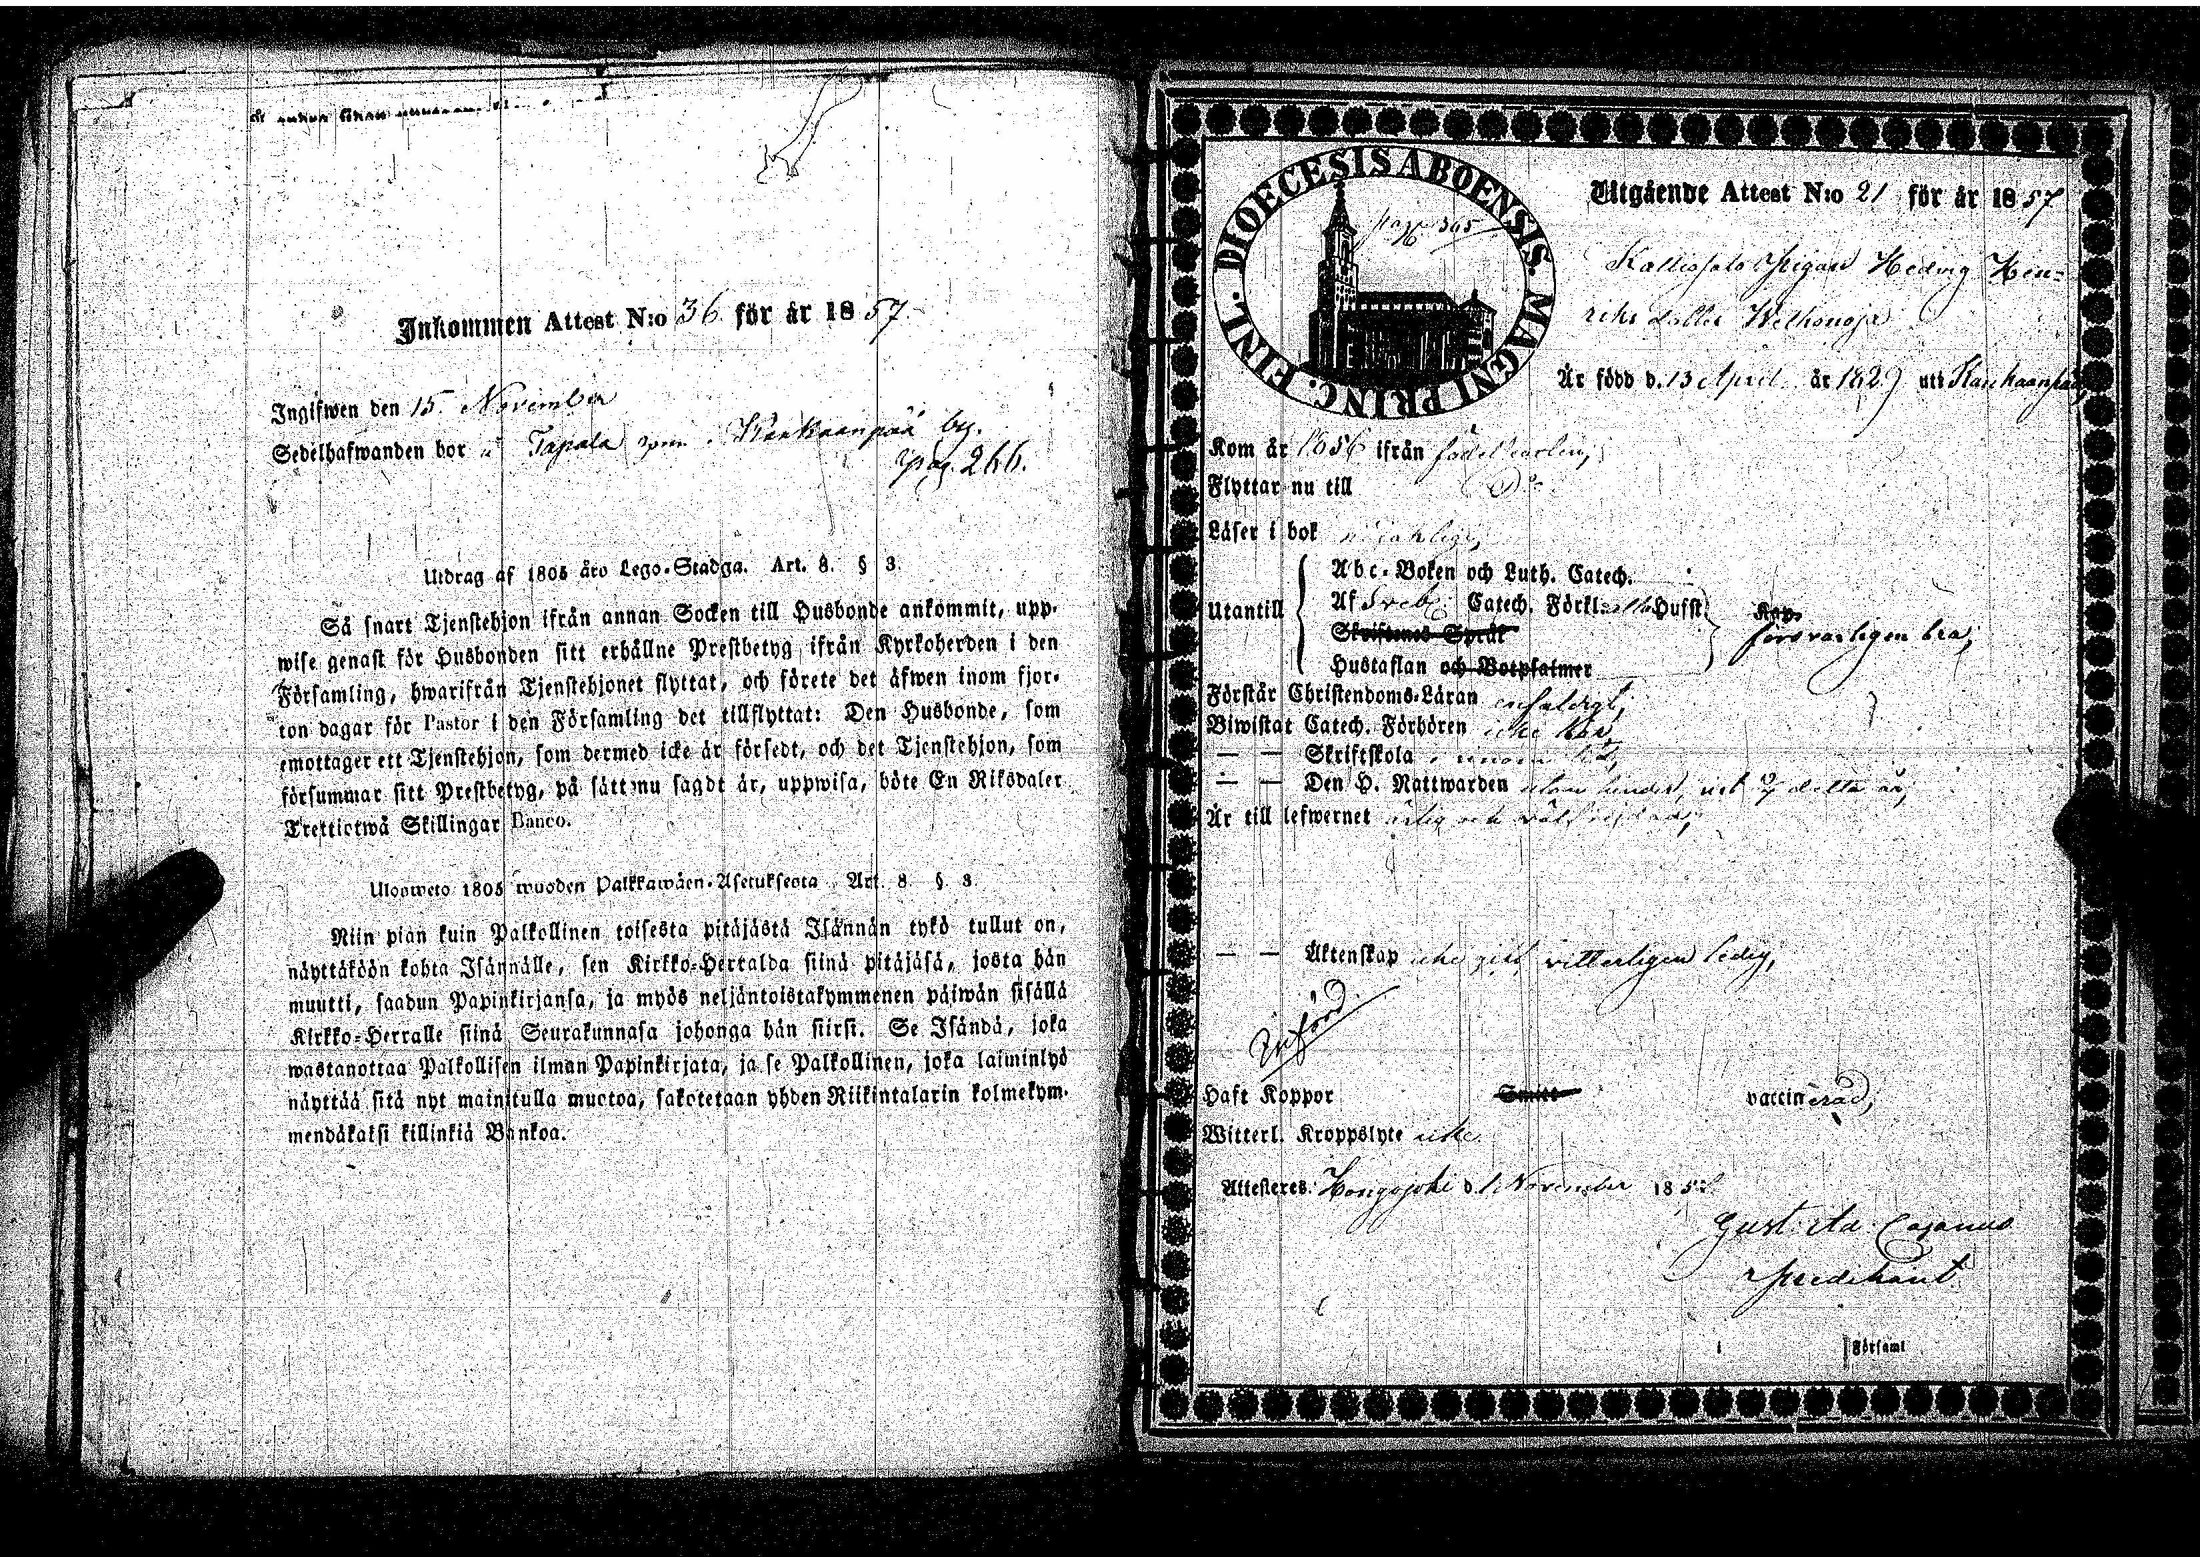 Inkommen Attest N:o 36 för år 1857
Ingifwen den 15 November
Sedelhafwanden bor i Tapala Kankaanpää by.
pag. 266.
Utdrag af 1805 års Lego-Stadga. Art. 8. § 3.
Så snart Tjenstehjon ifrån annan Socken till Husbonde ankommit, upp-
wise genast för Husbonden sitt erhållne Prestbetyg ifrån Kyrkoherden i den
Församling, hwarifrån Tjenstehjonet flyttat, och förete det äfwen inom fjor-
ton dagar för Pastor i den Församling det tillflyttat: Den Husbonde, som
emottager ett Tjenstehjon, som dermed icke är försedt, och det Tjenstehjon, som
försummar sitt Prestbetyg, på sätt nu sagdt är, uppwisa, böte En Riksdaler
Trettiotwå Skillingar Banco.
Ulosweto 1805 wuoden Palkkawäen-Asetuksesta Art. 8 § 3
Niin pian kuin Palkollinen toisesta pitäjästä Isännän tykö tullut on,
näyttäköön kohta Isännälle, sen Kirkko-Herralda siinä pitäjäsä, josta hän
muutti, saadun Papinkirjansa, ja myös neljäntoistakymmenen päiwän sisällä
Kirkko-Herralle siinä Seurakunnasa johonga hän siirsi. Se Isändä, joka
wastanottaa Palkollisen ilman Papinkirjata, ja se Palkollinen, joka laiminlyö
näyttää sitä nyt mainitulla muotoa, sakotetaan yhden Riikintalarin kolmekym-
mendäkaksi killinkiä Bankoa.
DIOECESIS ABOENSIS. MAGNI PRINC. FINL.
pag 345
Utgående Attest N:o 21 för år 1857
Pigan Hedvig Hen-
riks dotter
Är född d. 13 April år 1829 uti Kankaanpää,
Kom år 1856 ifrån
Flyttar nu till Do
Läser i bok
Utantill
Abc-Boken och Luth. Catech.
Af Sveb. Catech. Förkl. Hufst
Skriftenes Språk
Hustaflan och Botpsalmer
försvarligen bra,
Förstår Christendoms-Läran enfaldigt,
Biwistat Catech. Förhören icke här,
— — Skriftskola i
— — Den H. Nattwarden utan hinder, detta år,
Är till lefwernet ärlig och
— — Äktenskap icke gift, vitterligen ledig,
Införd
Haft Koppor Smitt vaccinerad,
Witterl. Kroppslyte icke
Attesteres Hongojoki d. 1 November 185
Gust. Ad. Cajanus
Predikant
i Församl